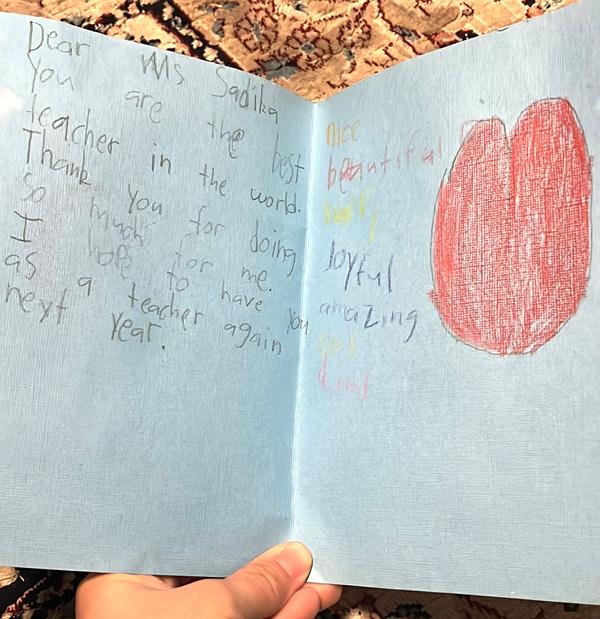 Dear Ms Sadika
You are the best
teacher in the world.
Thank you for doing
so much for me.
I hope to have you
as a teacher again
next year.
nice
beautiful
Joyful
amazing
kind